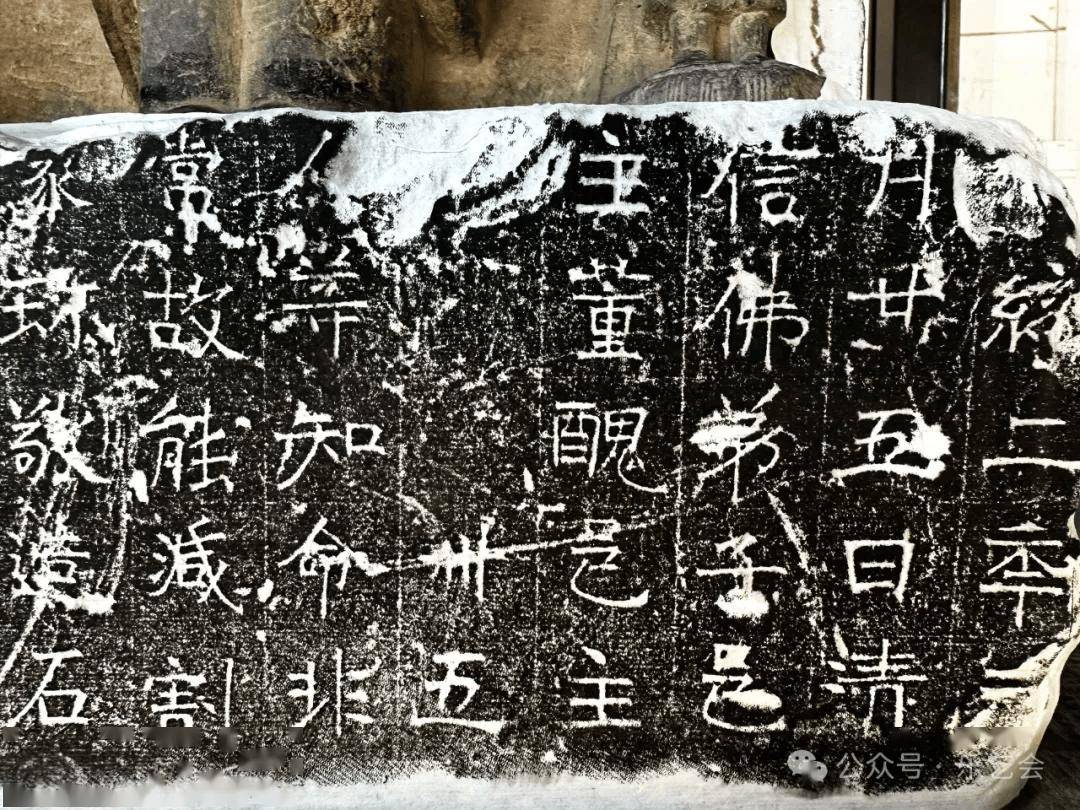 統二年二
月廿五日清
信佛弟子邑
主董醜邑主
卌五
人等知命非
常故能減割
家珎敬造石
公众号·乐艺会